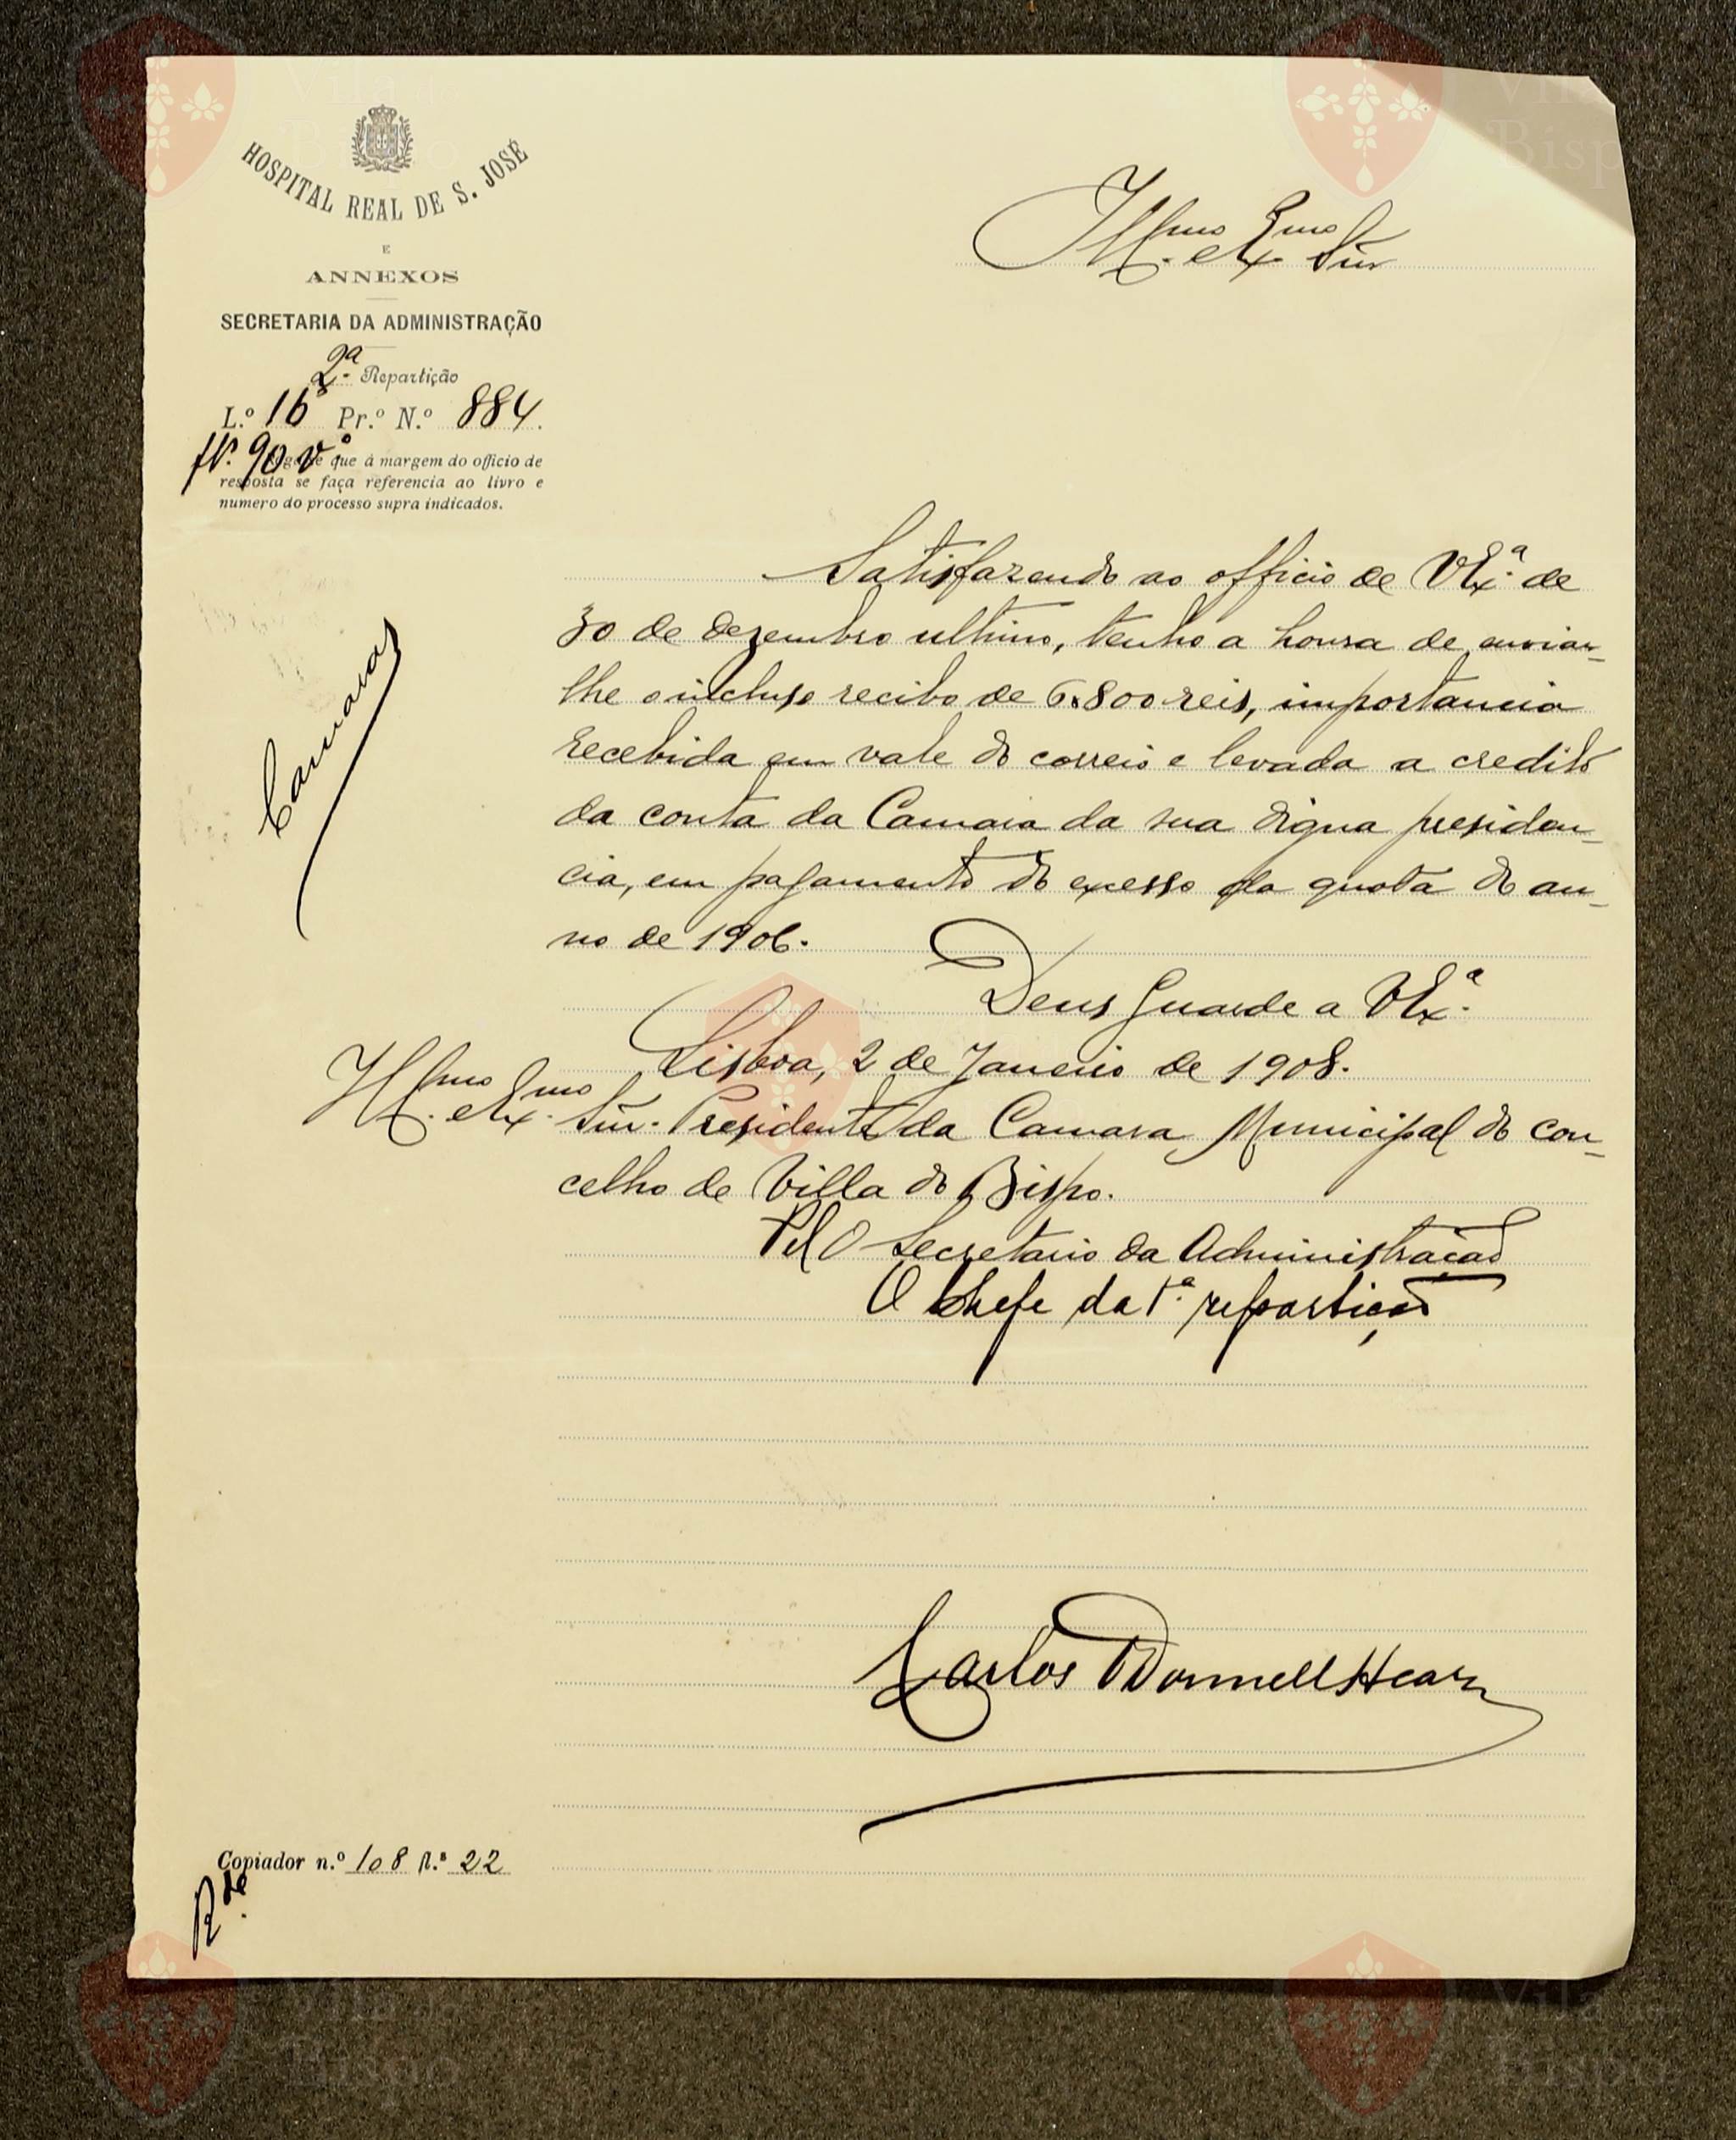 HOSPITAL REAL DE S. JOSÉ
E
ANNEXOS
SECRETARIA DA ADMINISTRAÇÃO
2.ª Repartição
L.º 16 Pr.º N.º 884.
fl. 90 v.º
Roga-se que á margem do officio de
resposta se faça referencia ao livro e
numero do processo supra indicados.
Camaras
Illmo. e Exmo. Snr
Satisfazendo ao officio de VEx.ª de
30 de dezembro ultimo, tenho a honra de enviar-
lhe o incluso recibo de 6.800 reis, importancia
recebida em vale do correio e levada a credito
da conta da Camara da sua digna presiden-
cia, em pagamento do excesso da quota do an-
no de 1906.
Deus Guarde a VEx.ª
Lisboa, 2 de Janeiro de 1908.
Illmo. e Exmo. Snr. Presidente da Camara Municipal do con-
celho de Villa do Bispo.
Pel O Secretario da Administração
O Chefe da 1.ª repartição
Carlos O'Donnell Hearn
Copiador n.º 108 N.º 22
R.de
Vila do
Bispo